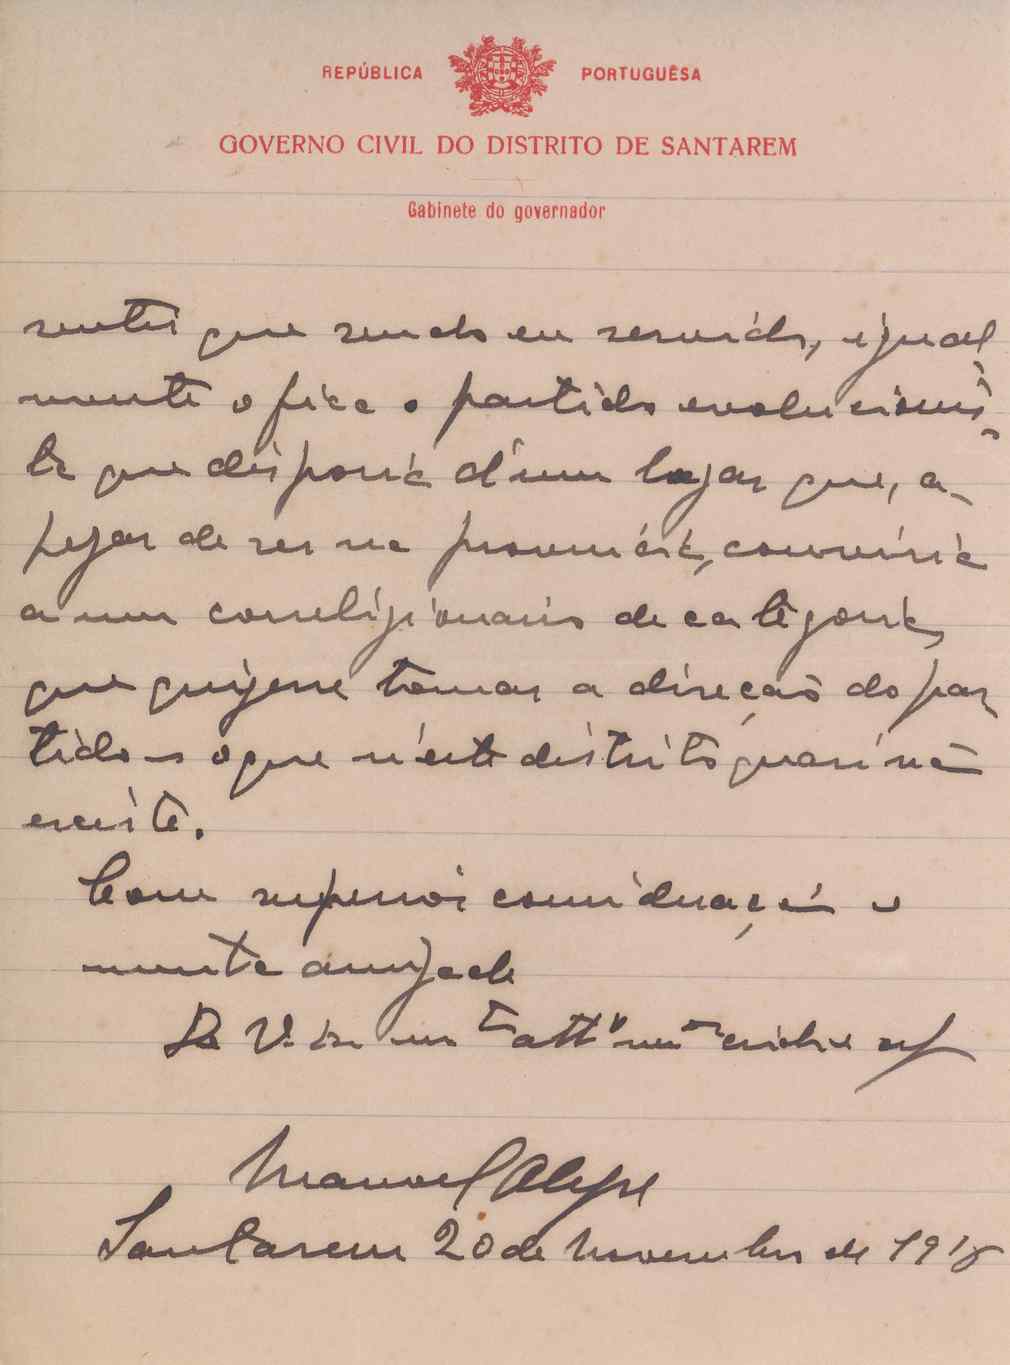 REPÚBLICA PORTUGUÊSA
GOVERNO CIVIL DO DISTRITO DE SANTAREM
Gabinete do governador
sentir que sendo eu servido, igual
mente o fica o partido evolucionis-
ta que disporia d'um logar que, a-
pezar de ser na provincia, conviria
a um correligionario de categoria,
que quizesse tomar a direcção do par
tido – o que n'este distrito quasi não
existe.
Com superior consideração e
muita amizade
De V. Ex.
Manoel Alegre
Santarem 20 de Novembro de 191